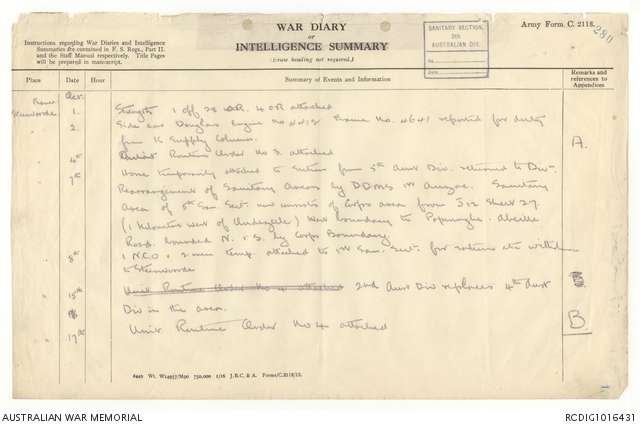 WAR DIARY
or
INTELLIGENCE SUMMARY
(Erase heading not required.)
Army Form C. 2118.
280
SANITARY SECTION,
5th
AUSTRALIAN DIV.
No.
Date
Instructions regarding War Diaries and Intelligence
Summaries are contained in F. S. Regs., Part II.
and the Staff Manual respectively. Title Pages
will be prepared in manuscript.
Place Date Hour Summary of Events and Information Remarks and references to Appendices
Oct.
Steenvoorde 1. Strength 1 off 28 O.R. 4 OR attached
2. Side car Douglas Engine No 4412 Frame No. 4641 reported for duty
from Supply Column.
4th Routine Order No 3 attached A.
7th Horse temporarily attached to Section from 5th Aust Div. returned to Div.
Rearrangement of Sanitary Areas by DDMS 1st Anzac. Sanitary
Area of 5th San. Sect. now consists of Corps area from J12 Sheet 27
(1 Kilometre west of ) West boundary to Poperinghe. Abeele
Road bounded N. & S. by Corps Boundary
" 8th 1 N.C.O. & 2 men temp. attached to 1st San. Sect. for
to Steenvoorde
" 15th Unit Routine Order No 4 attached 2nd Aust Div replaces 4th Aust
Div in the area.
" 17th Unit Routine Order No 4 attached B
6445 Wt. W14957/M90 750,000 1/16 J.B.C. & A. Forms/C.2118/12.
AUSTRALIAN WAR MEMORIAL
RCDIG1016431